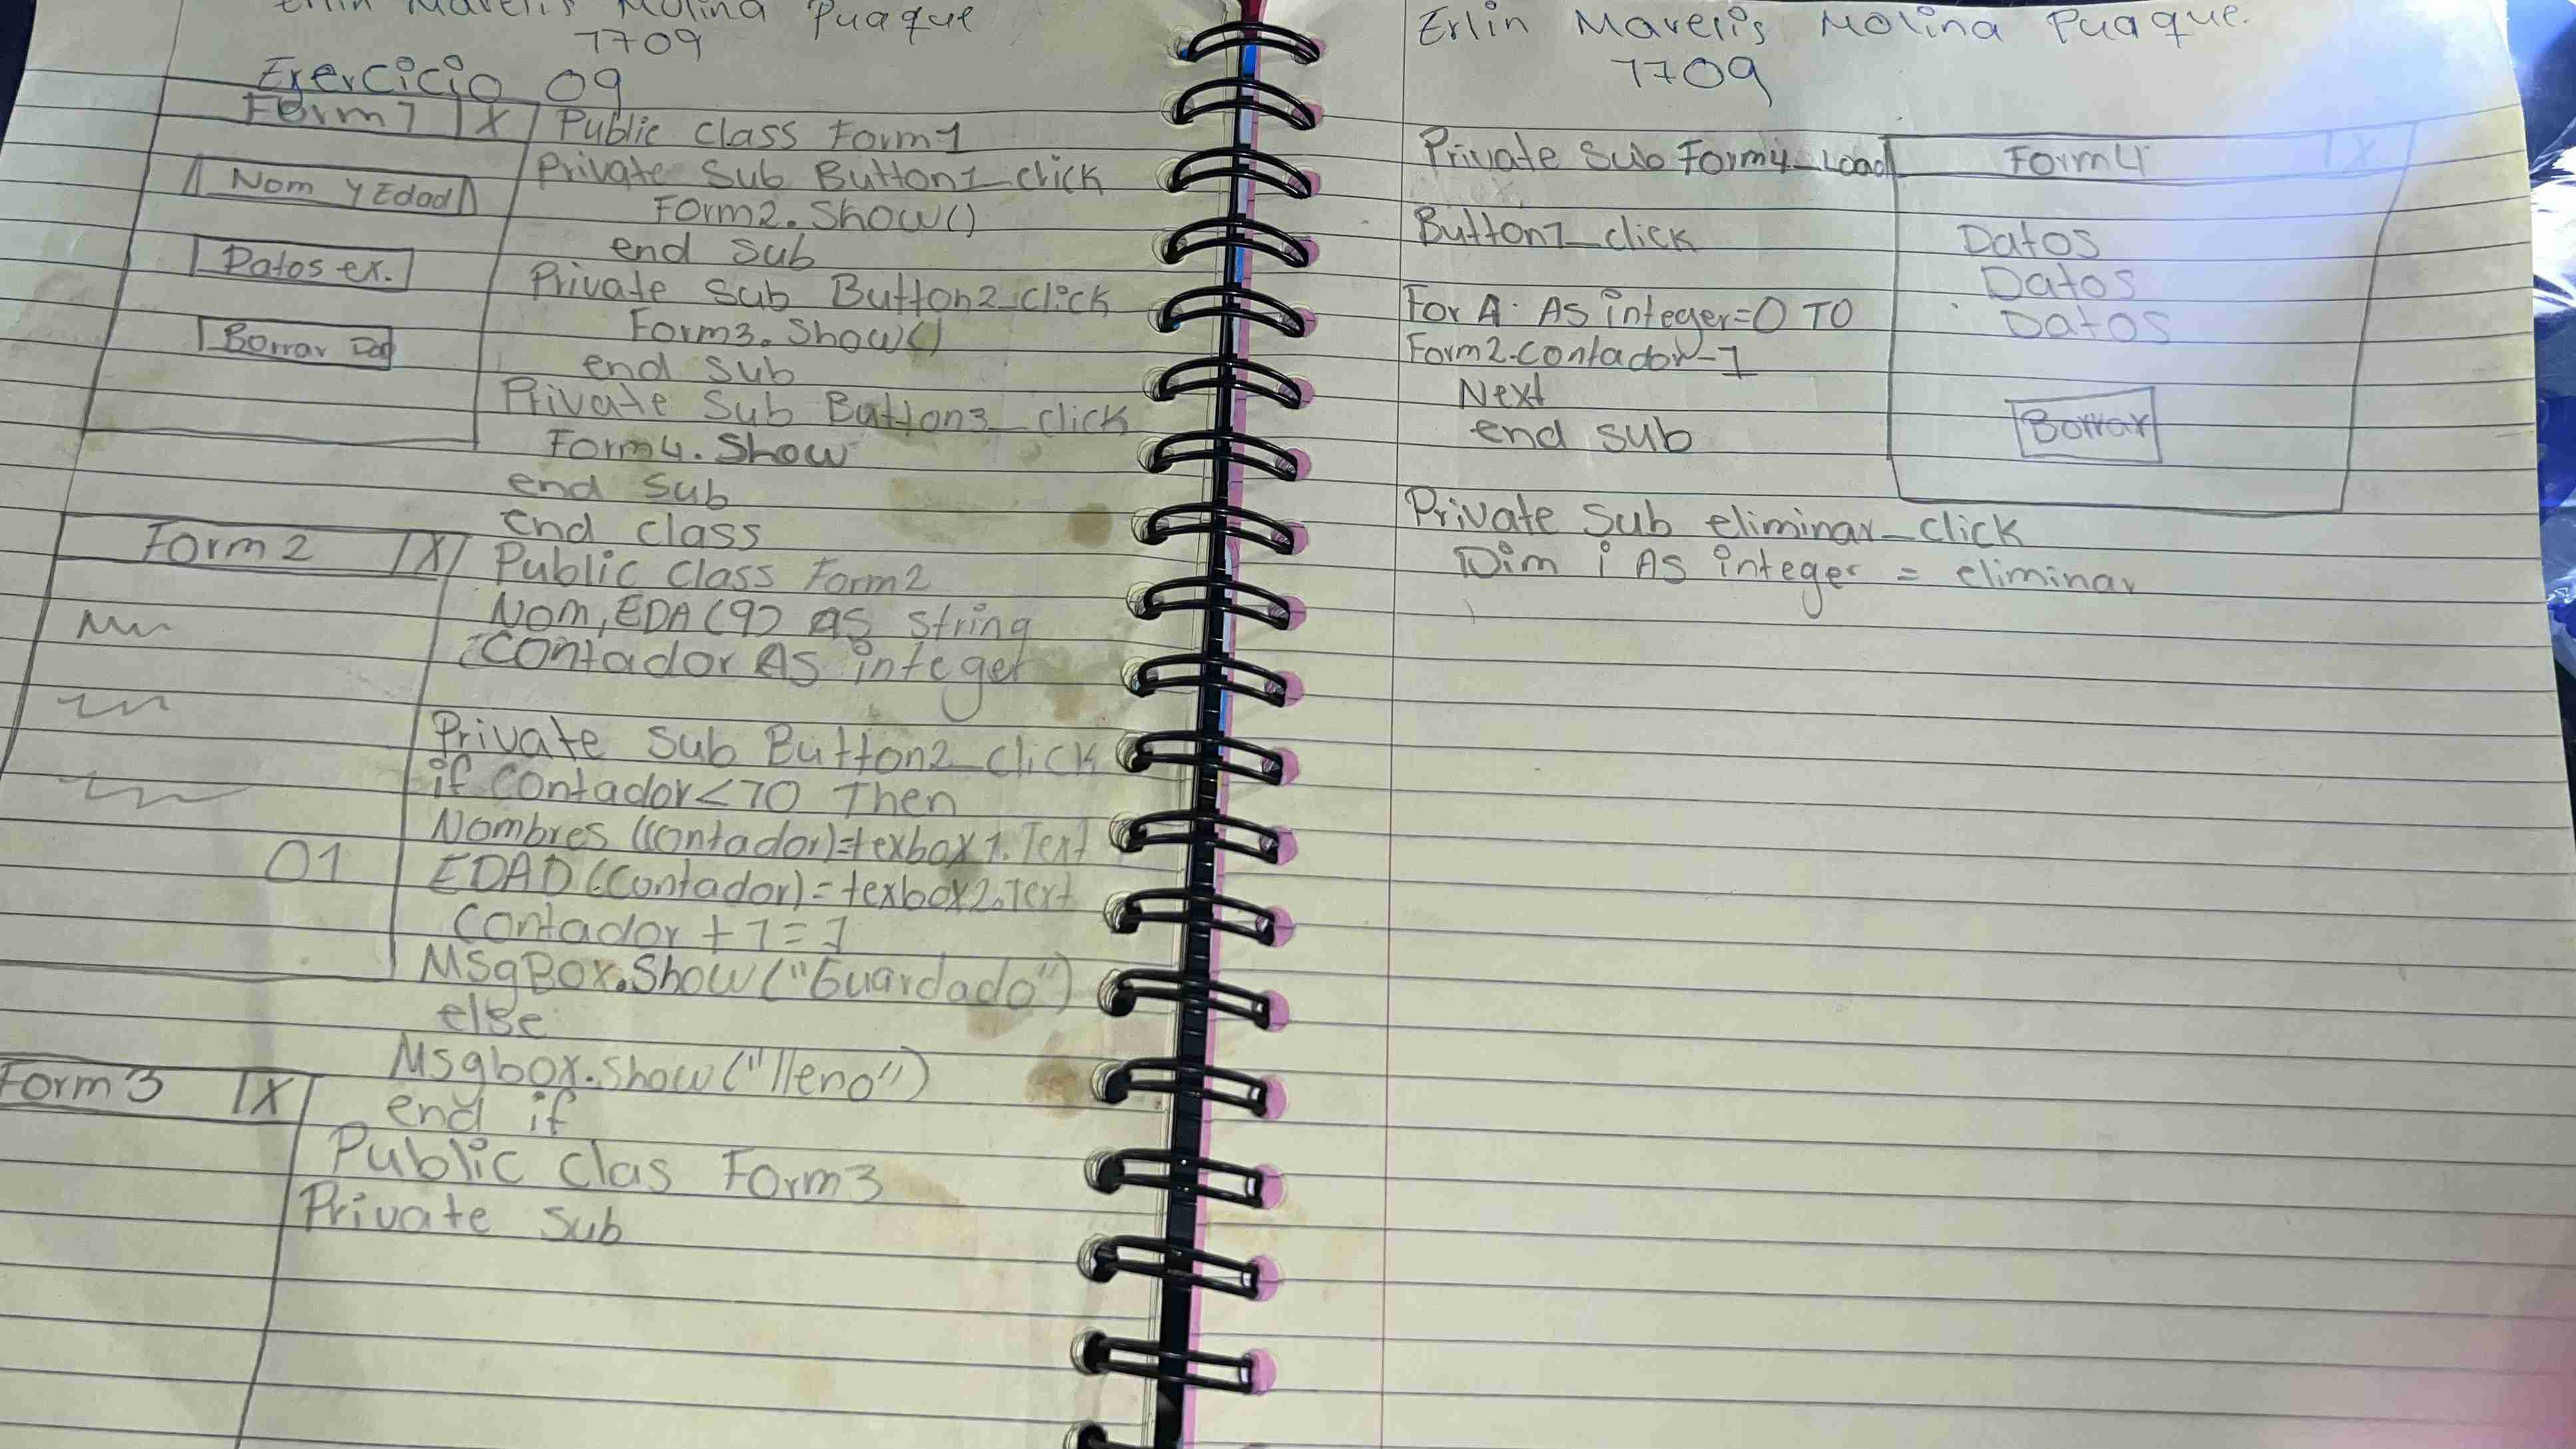 Erlin Marelis Molina Puaque
1709
Exercicio 09
Form1 X
Nom y Edad
Datos ex.
Borrar Dat
Public class Form1
Private Sub Button1_click
Form2.Show()
end sub
Private Sub Button2_click
Form3.Show()
end sub
Private Sub Button3_click
Form4.Show
end sub
end class
Form2 X
01
Public class Form2
Nom, EDA(9) as string
Contador As integer
Private Sub Button2_click
if Contador<10 Then
Nombres (Contador)=texbox1.Text
EDAD(Contador)=texbox2.Text
Contador + 1 = 1
MSgBox.Show("Guardado")
else
Msgbox.show("lleno")
end if
Form3 X
Public clas Form3
Private sub
Erlin Marelis Molina Puaque.
1709
Private Sub Form4_Load
Button1_click
For A As integer=0 TO
Form2.contador-1
Next
end sub
Form4 X
Datos
Datos
Datos
Borrar
Private Sub eliminar_click
Dim i As integer = eliminar